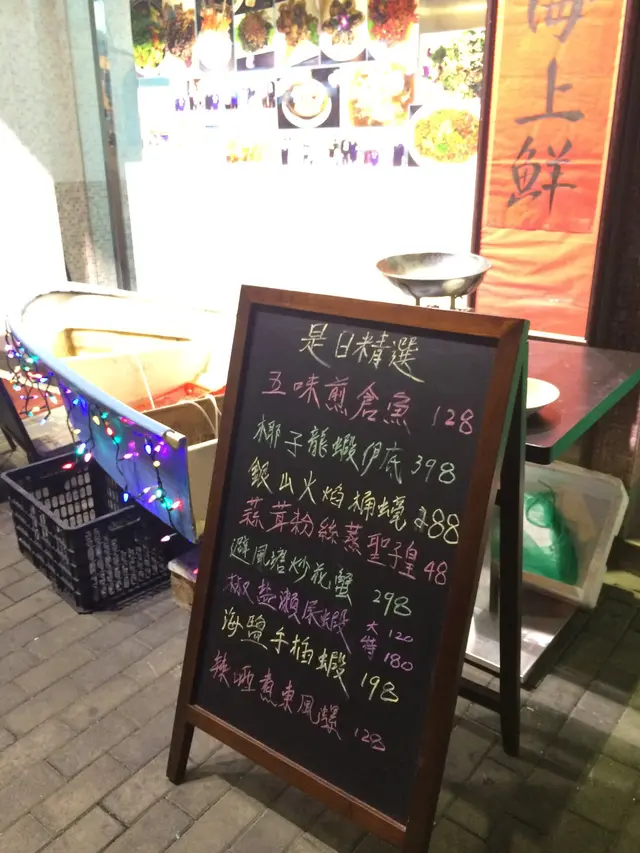 海上鮮
是日精選
五味煎倉魚 128
椰子龍蝦伊底 398
銀山火焰桶蠔 288
蒜茸粉絲蒸聖子皇 48
避風塘炒花蟹 298
椒盐瀨尿蝦 大 120
特 180
海鹽手插蝦 198
辣酒煮東風螺 128